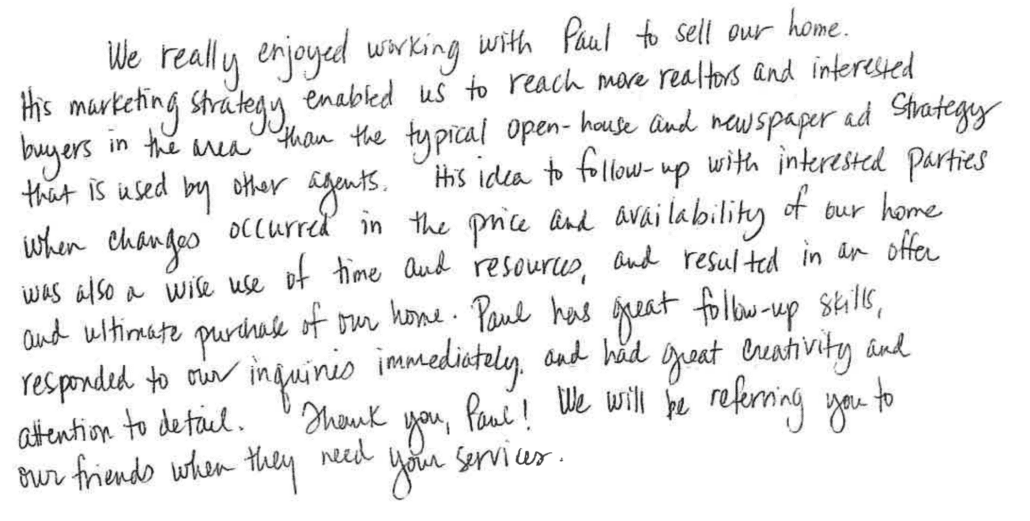 We really enjoyed working with Paul to sell our home.
His marketing strategy enabled us to reach more realtors and interested
buyers in the area than the typical open-house and newspaper ad strategy
that is used by other agents. His idea to follow-up with interested parties
when changes occurred in the price and availability of our home
was also a wise use of time and resources, and resulted in an offer
and ultimate purchase of our home. Paul has great follow-up skills,
responded to our inquiries immediately, and had great creativity and
attention to detail. Thank you, Paul! We will be referring you to
our friends when they need your services.